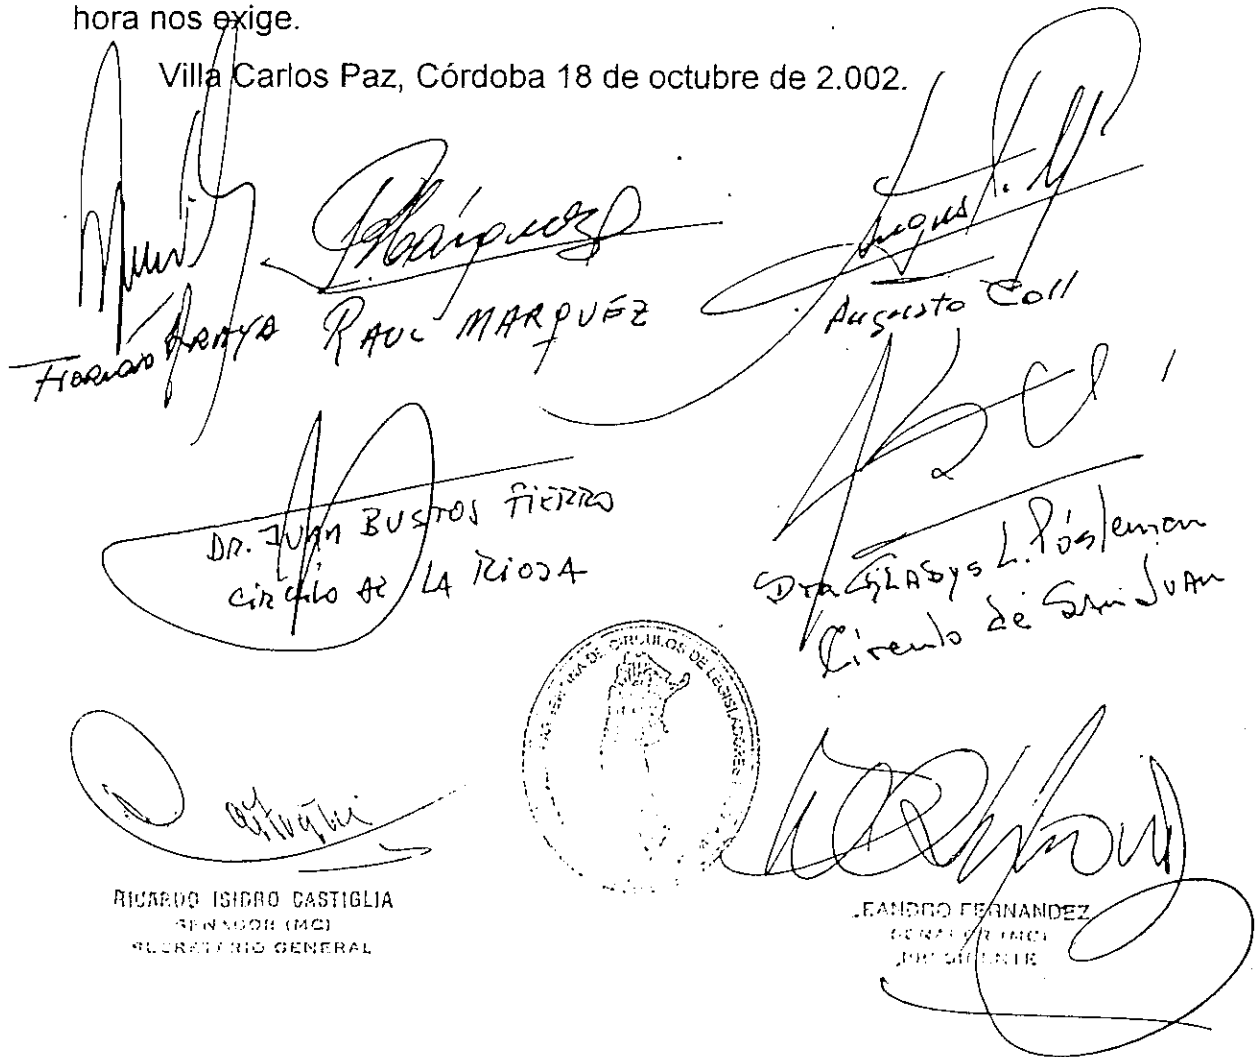 hora nos exige.
Villa Carlos Paz, Córdoba 18 de octubre de 2.002.
ARAYA
RAUL MARQUEZ
Augusto Coll
DR. JUAN BUSTOS FIERRO
Circulo de LA RIOJA
Dra GLADYS L. Pósleman
Círculo de San JUAN
DE CIRCULOS DE LEGISLADORES
RICARDO ISIDRO CASTIGLIA
SENADOR (MC)
SECRETARIO GENERAL
LEANDRO FERNANDEZ
SENADOR (MC)
PRESIDENTE